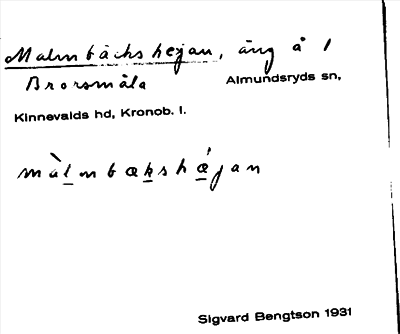 Malmbäckshejan, äng å 1
Brorsmåla Almundsryds sn,
Kinnevalds hd, Kronob. l.
màlmbækshǽjan
Sigvard Bengtson 1931